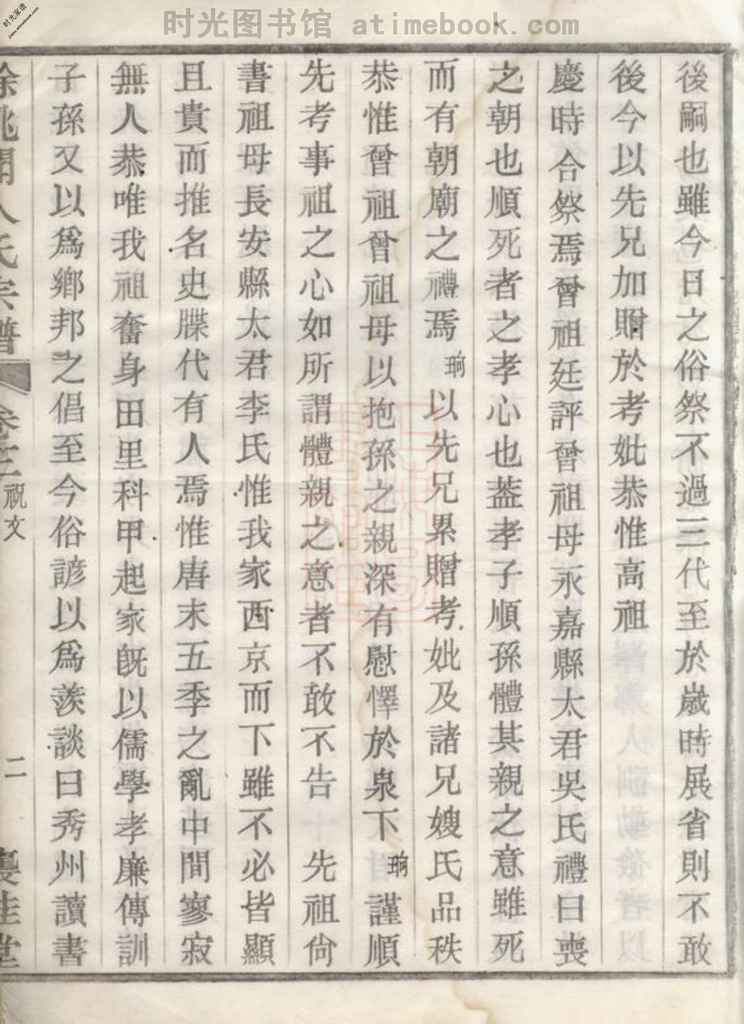 时光图书馆 atimebook.com
後嗣也雖今日之俗祭不過三代至於歲時展省則不敢
後今以先兄加贈於考妣恭惟高祖
慶時合祭焉曾祖廷評曾祖母永嘉縣太君吳氏禮曰喪
之朝也順死者之孝心也葢孝子順孫體其親之意雖死
而有朝廟之禮焉珣以先兄累贈考妣及諸兄嫂氏品秩
恭惟曾祖曾祖母以抱孫之親深有慰懌於泉下珣謹順
先考事祖之心如所謂體親之意者不敢不告 先祖尙
書祖母長安縣太君李氏惟我家西京而下雖不必皆顯
且貴而推名史牒代有人焉惟唐末五季之亂中間寥寂
無人恭唯我祖奮身田里科甲起家旣以儒學孝廉傳訓
子孫又以爲鄕邦之倡至今俗諺以爲羨談曰秀州讀書
餘姚聞人氏宗譜 卷二 祝文 二